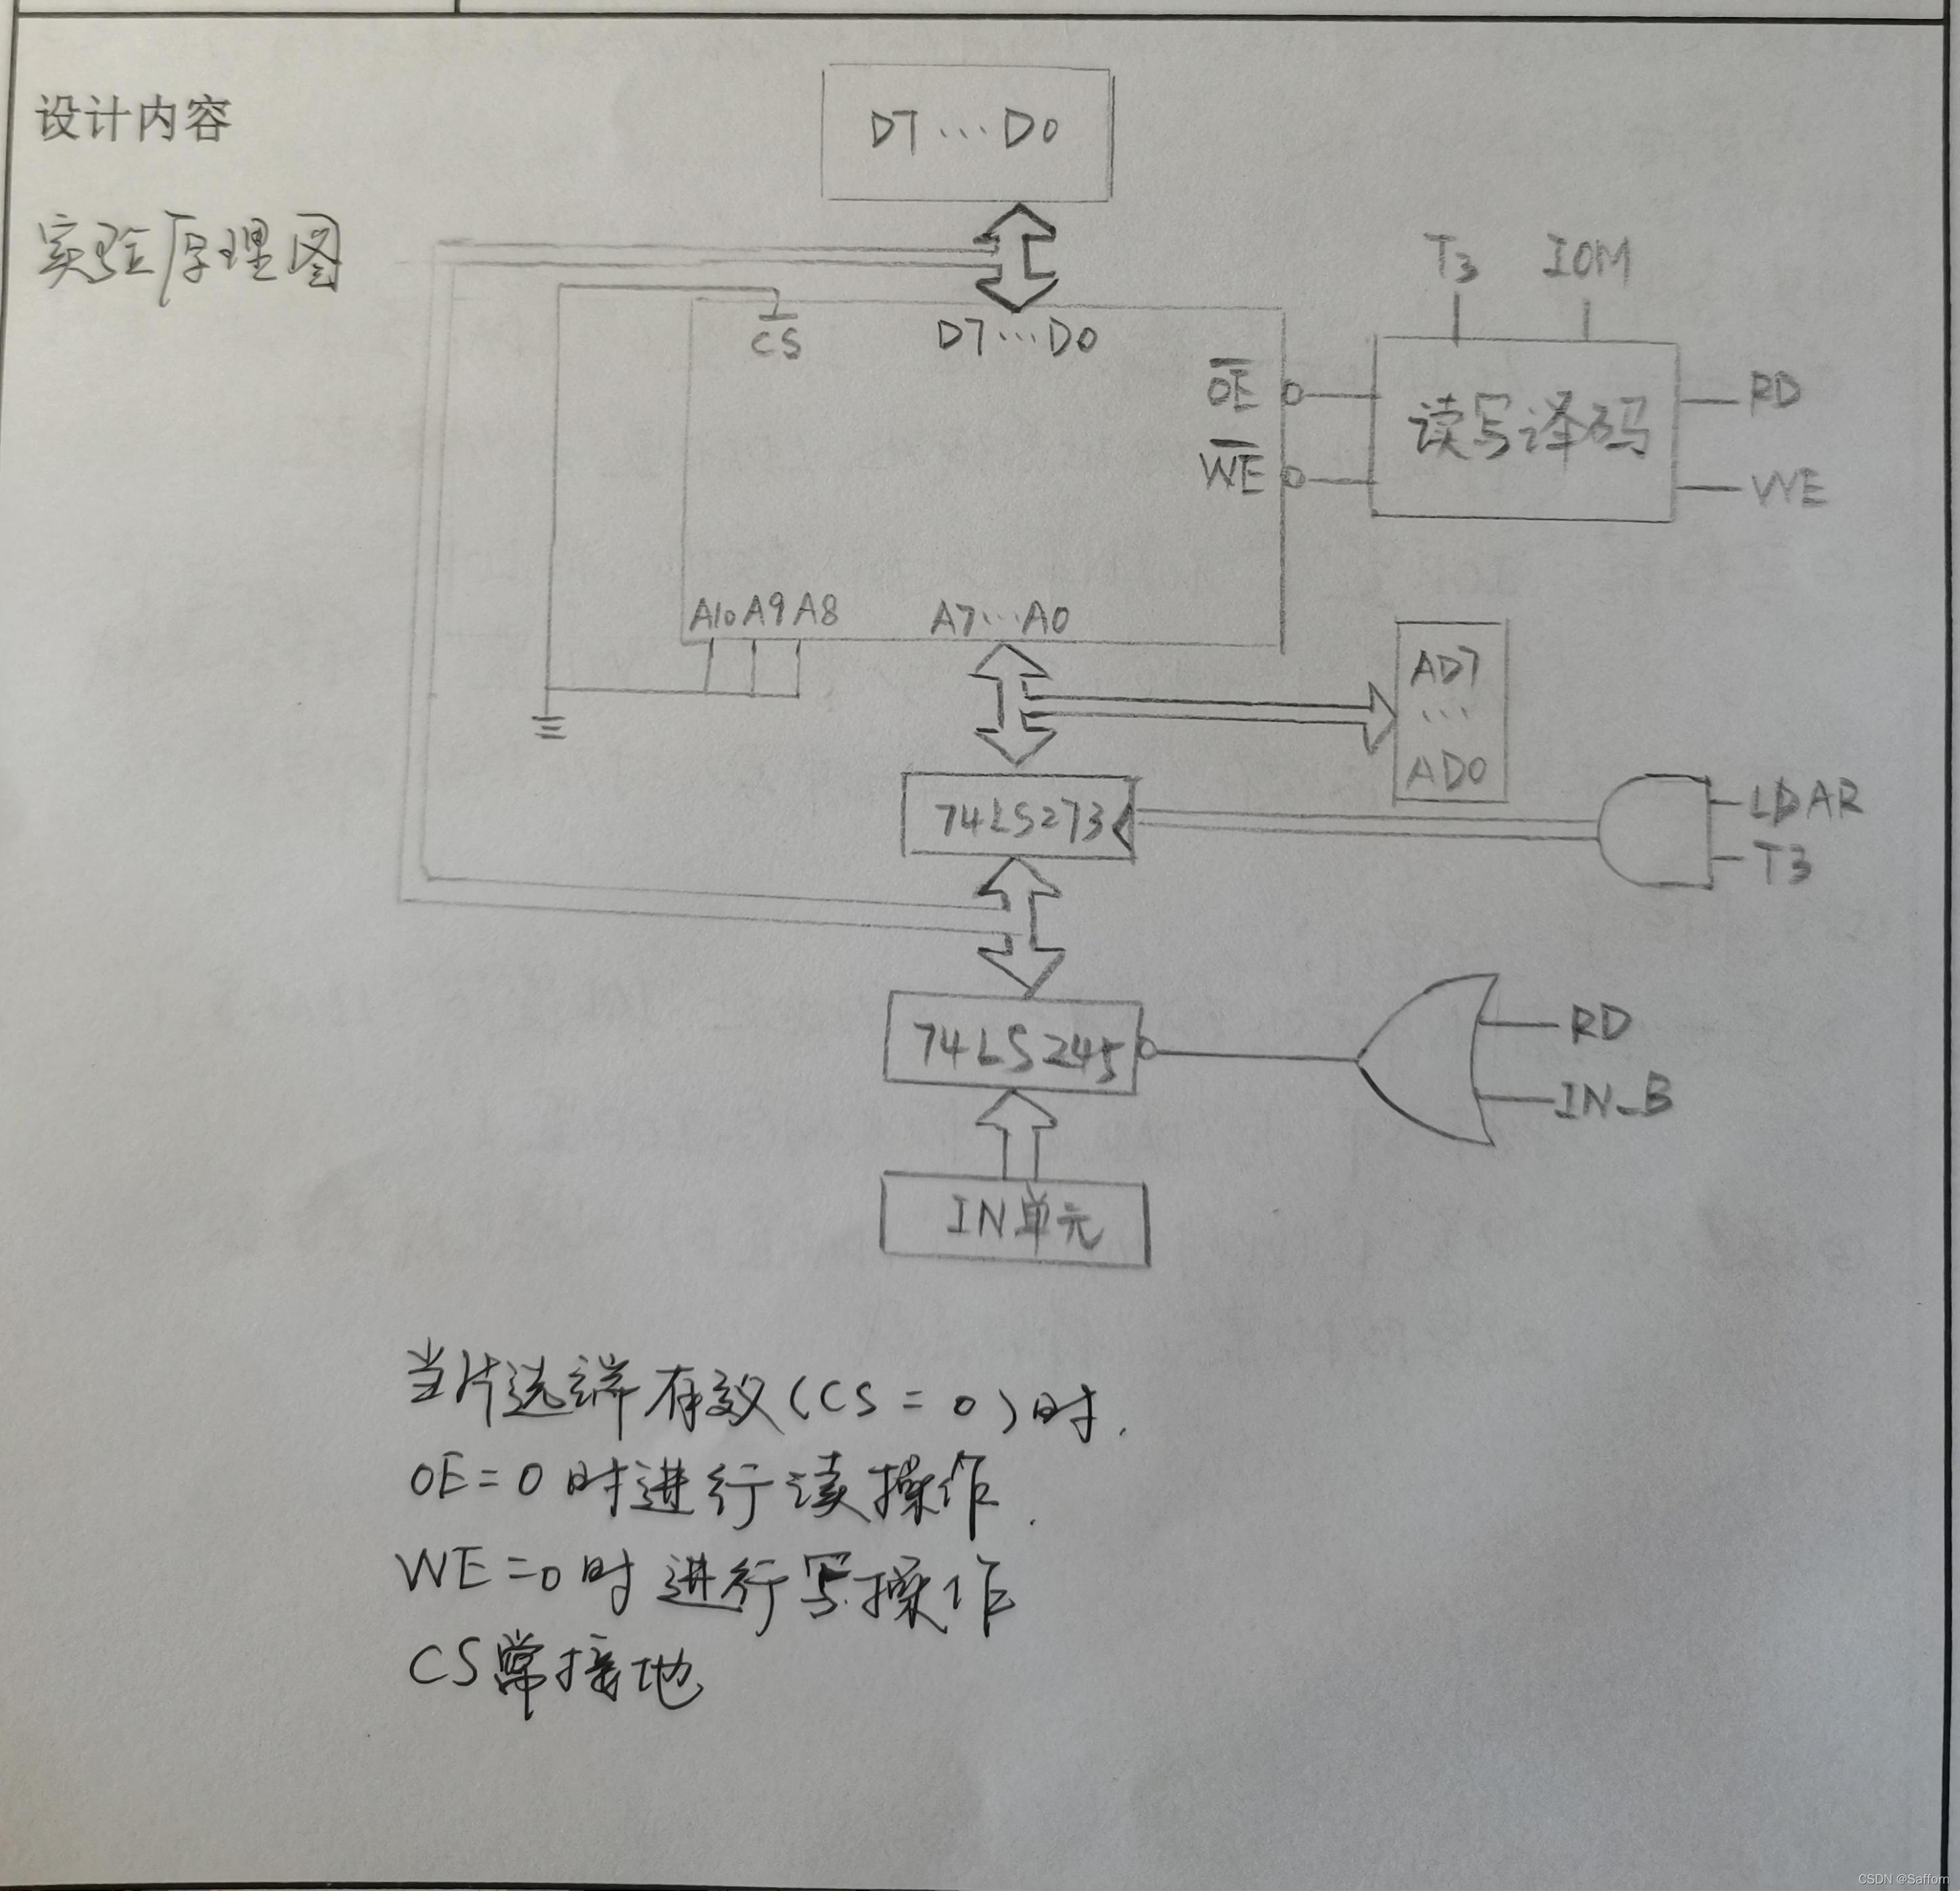 设计内容
实验原理图
D7…D0
T3 IOM
CS
D7…D0
OE
WE
读写译码
RD
WE
A10 A9 A8
A7…A0
AD7
…
AD0
74LS273
LDAR
T3
74LS245
RD
IN_B
IN单元
当片选端有效(CS=0)时.
OE=0时进行读操作.
WE=0时进行写操作
CS常接地
CSDN @Saffom